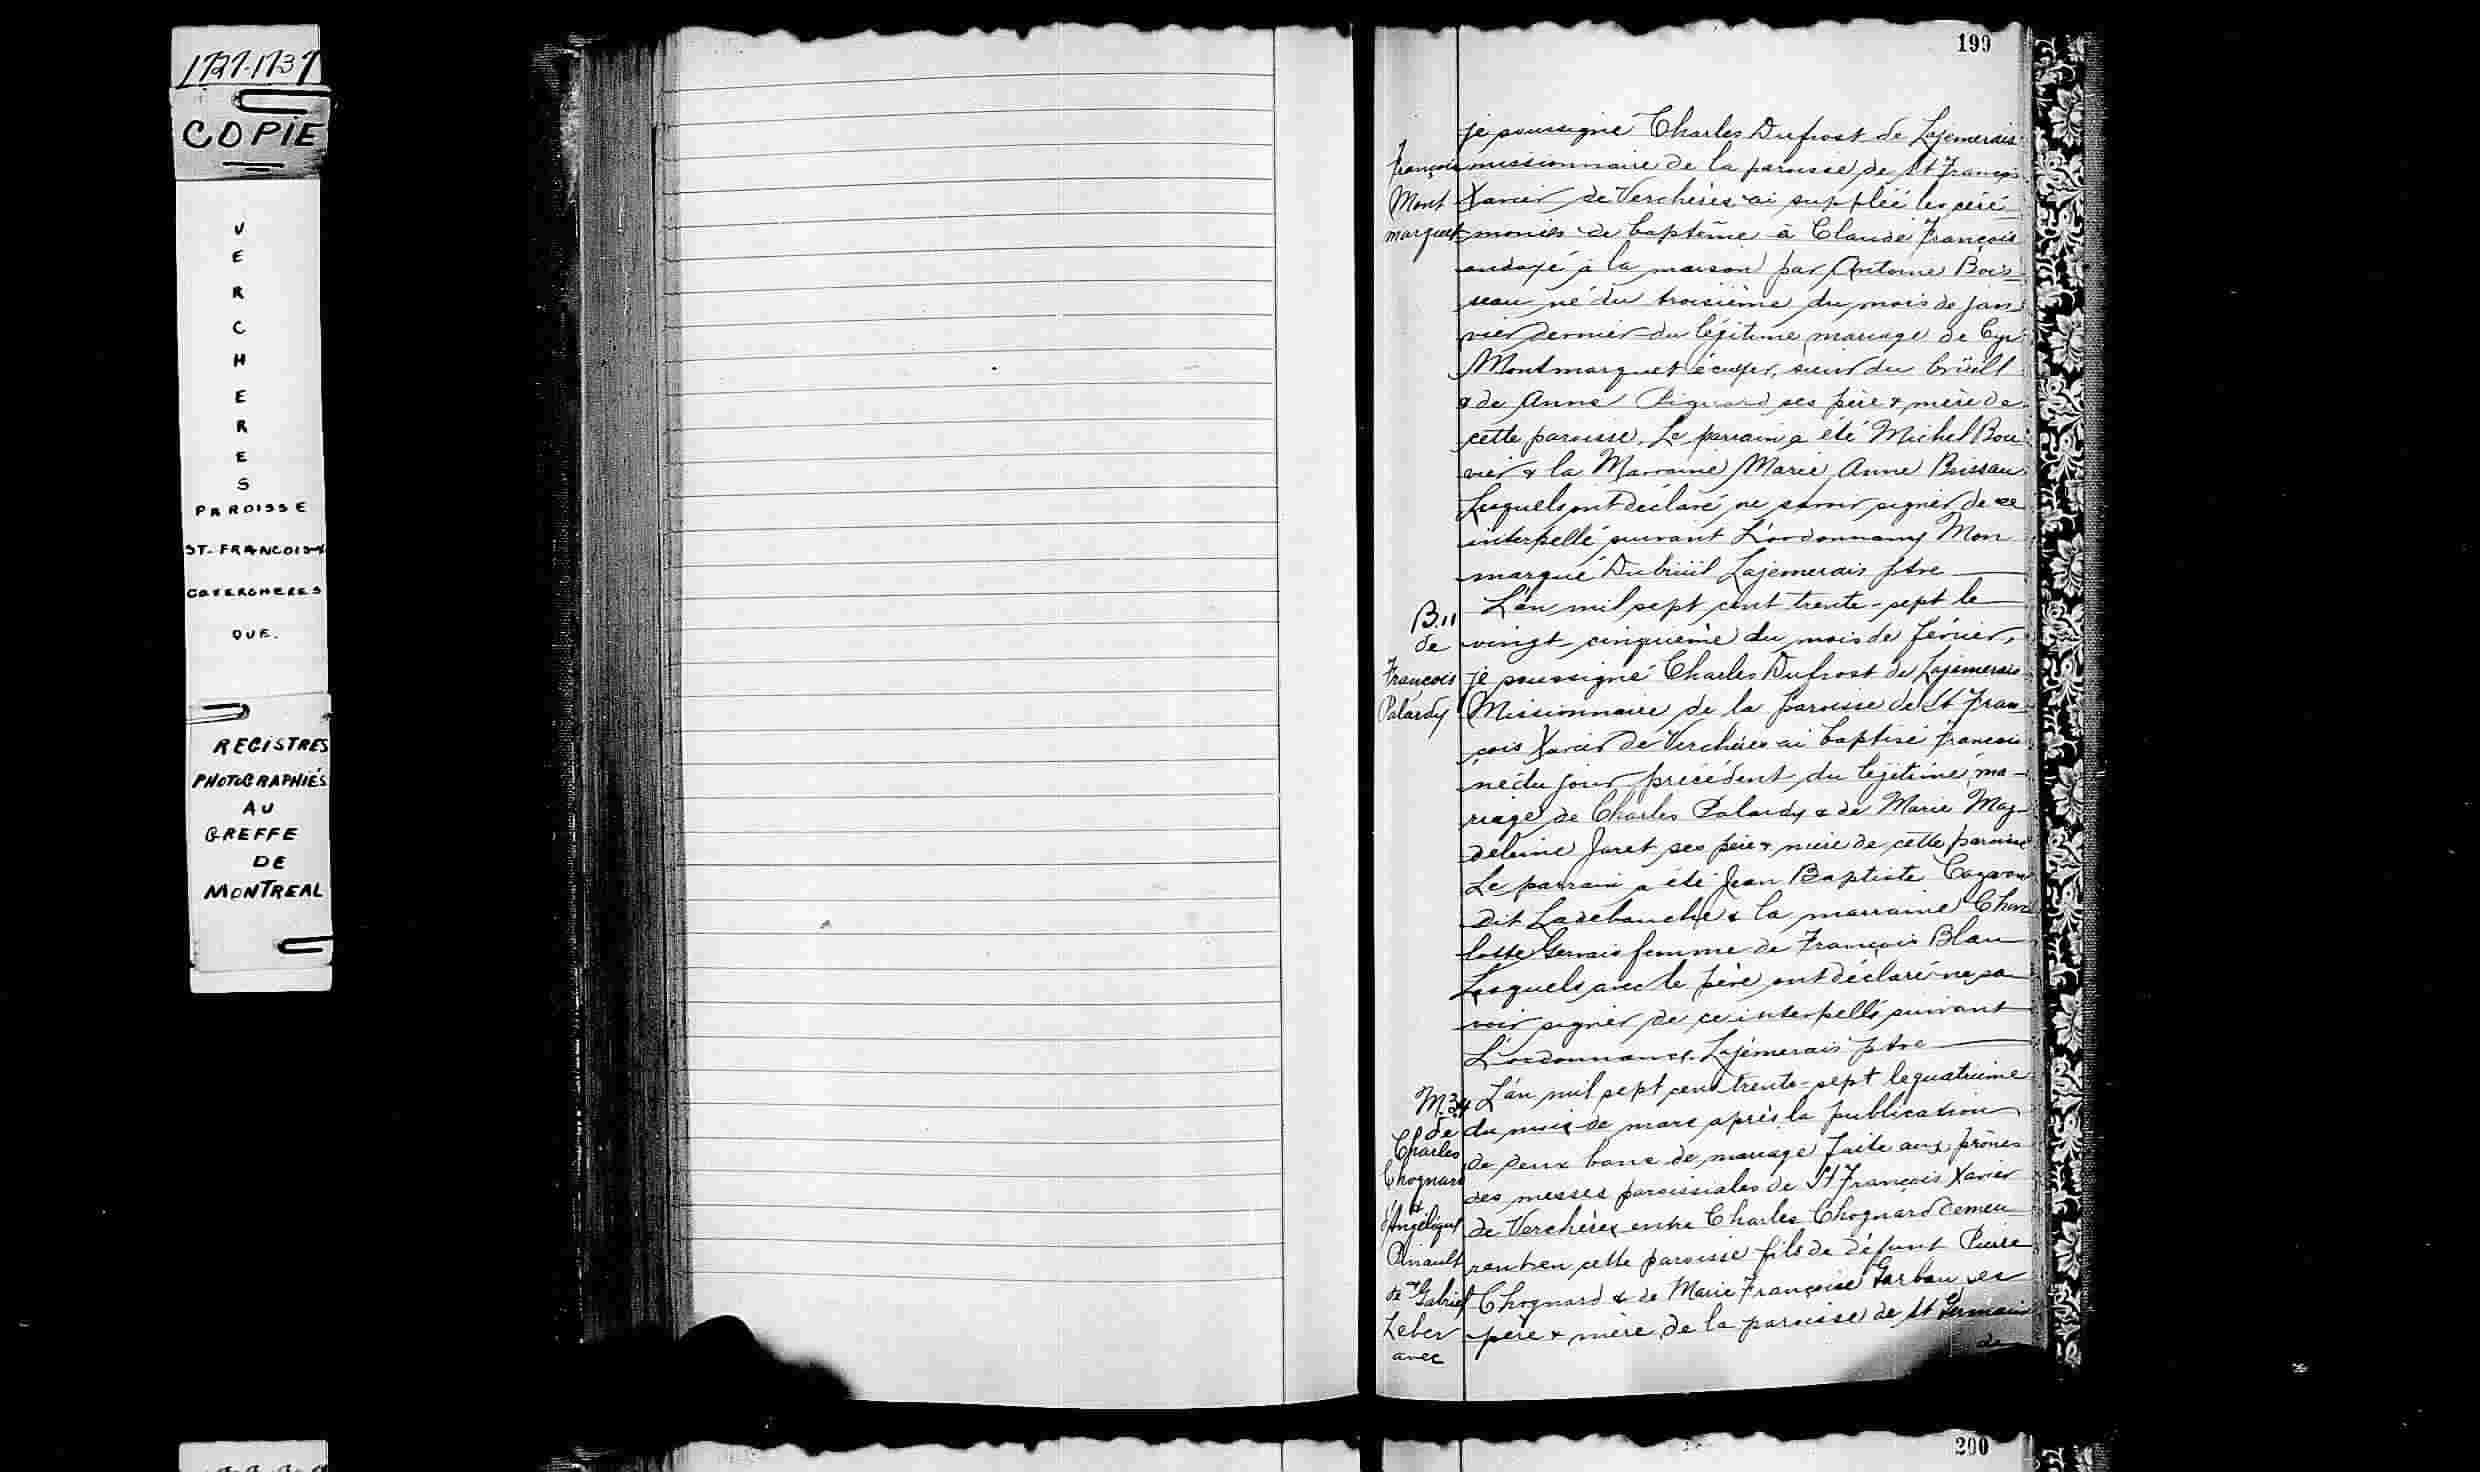 1727-1737
COPIE
VERCHERES
PAROISSE
ST-FRANCOIS-X
QUE.
REGISTRES
PHOTOGRAPHIÉS
AU
GREFFE
DE
MONTREAL
199
François
Mont
marquet
je soussigné Charles Dufrost de Lajemerais
missionnaire de la paroisse de St François
Xavier de Verchères ai supplée les céré
monies de baptême à Claude François
ondoyé à la maison par Antoine Bois
seau né du troisième du mois de jan
vier dernier du légitime mariage de Cyr
Montmarquet écuyer, sieur du brüill
& de Anne ses père & mère de
cette paroisse. Le parrain a été Michel Bou
vier & la Marraine Marie Anne Boissau
Lesquels ont déclaré ne savoir signer de ce
interpellé suivant L'ordonnance Mon
marqué Dubrüil Lajemerais ptre
B.11
de
François
Palardy
L'an mil sept cent trente-sept le
vingt cinquième du mois de février,
je soussigné Charles Dufrost de Lajemerais
Missionnaire de la paroisse de St Fran
çois Xavier de Verchères ai baptisé François
né du jour précédent du légitime ma-
riage de Charles Palardy & de Marie Mag
deleine Jaret ses père & mère de cette paroisse
Le parrain a été Jean Baptiste
dit Ladebauche & la marraine Char
lotte Gervais femme de François Blau
Lesquels avec le père ont déclaré ne sa
voir signer de ce interpellé suivant
L'ordonnance. Lajémerais ptre
M.34
de
Charles
Chognard
&
d'Angélique
Pinault
de Gabriel
Leber
avec
L'an mil sept cent trente-sept le quatrième
du mois de mars après la publication
de deux bans de mariage faite aux prônes
des messes paroissiales de St François Xavier
de Verchères entre Charles Chognard demeu
rant en cette paroisse fils de défunt Pierre
Chognard & de Marie Françoise Garbau ses
père & mère de la paroisse de St Germain
de
200